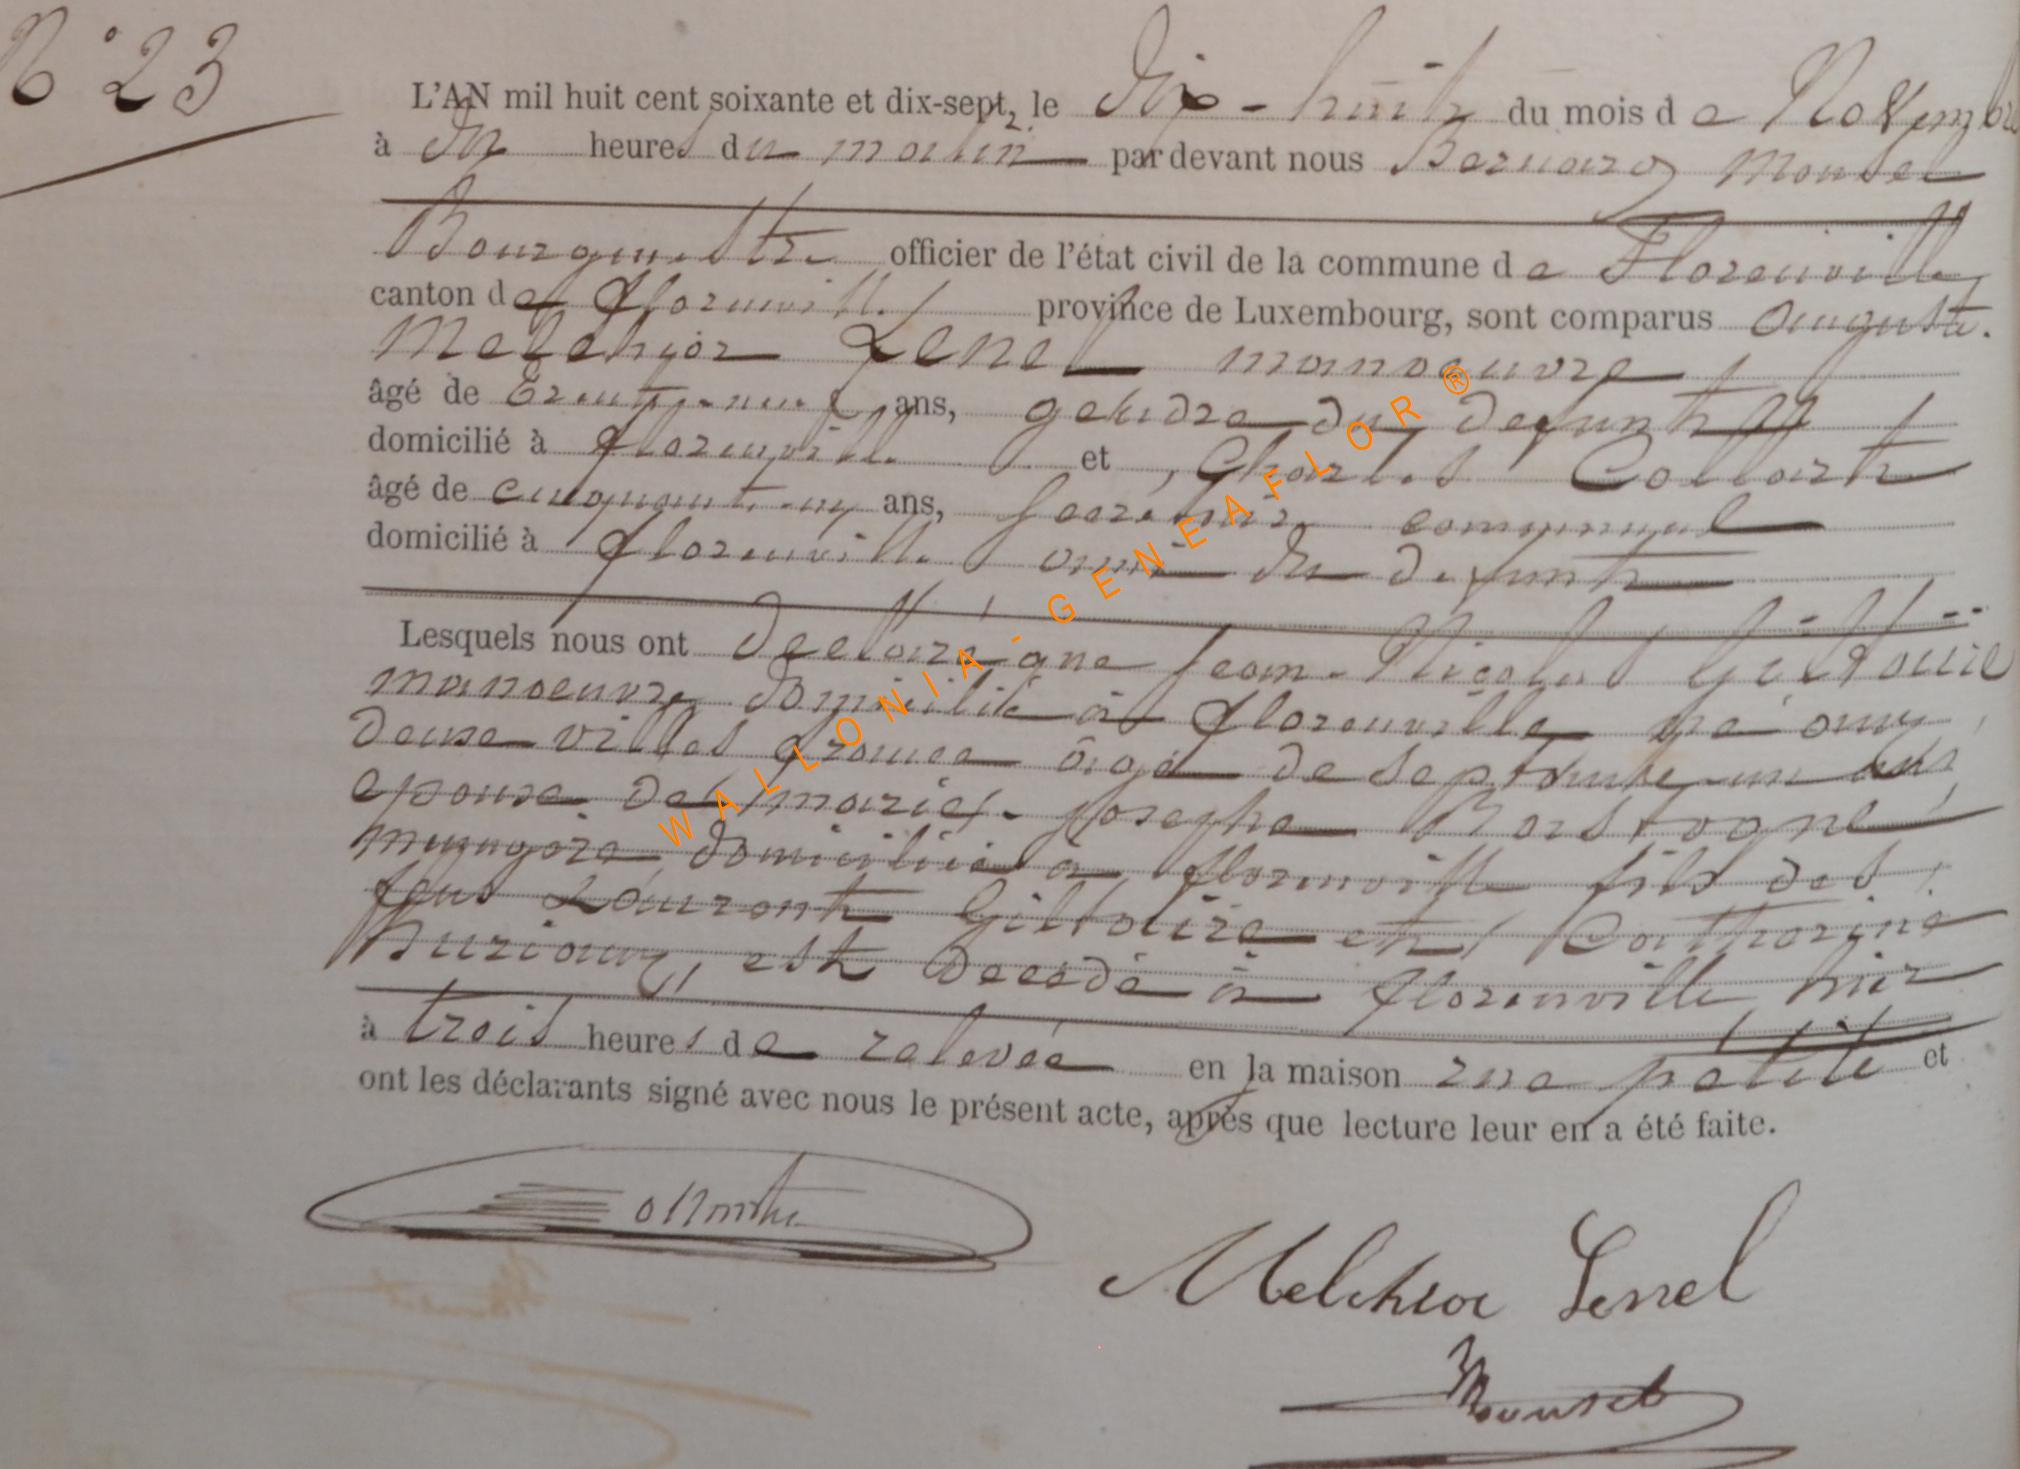 N° 23
L'AN mil huit cent soixante et dix-sept, le Dix-huit du mois de Novembre
à dix heures du matin par devant nous Bernard Mousel
Bourgmestre officier de l'état civil de la commune de Florenville
canton de florenville province de Luxembourg, sont comparus Auguste
Melchior Lenel manoeuvre
âgé de Trente-neuf ans, gendre du defunt
domicilié à florenville et Charles Collart
âgé de cinquante-un ans, secretaire communal
domicilié à florenville ami du defunt
Lesquels nous ont declaré que Jean-Nicolas Giltaire
manoeuvre domicilié à florenville né aux
deux villes france âgé de septante-un ans
epoux de marie-Josephe Bastogne
menagère domiciliée à florenville fils des
feus Laurent Giltaire et Catherine
Buriaux, est décédé à florenville hier
à trois heures de relevée en la maison rue petite et
ont les déclarants signé avec nous le présent acte, après que lecture leur en a été faite.
Melchior Lenel
Mousel
WALLONIA - GENEAFLOR ®